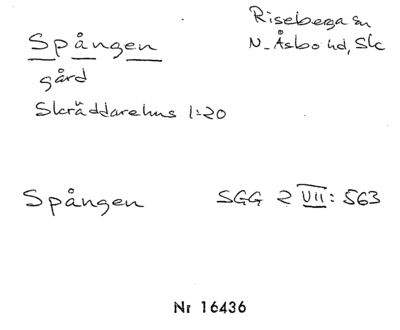 Riseberga sn
Spången N. Åsbo hd, Sk
gård
Skräddarehus 1:20
Spången SGG 2 VII: 563
Nr 16436